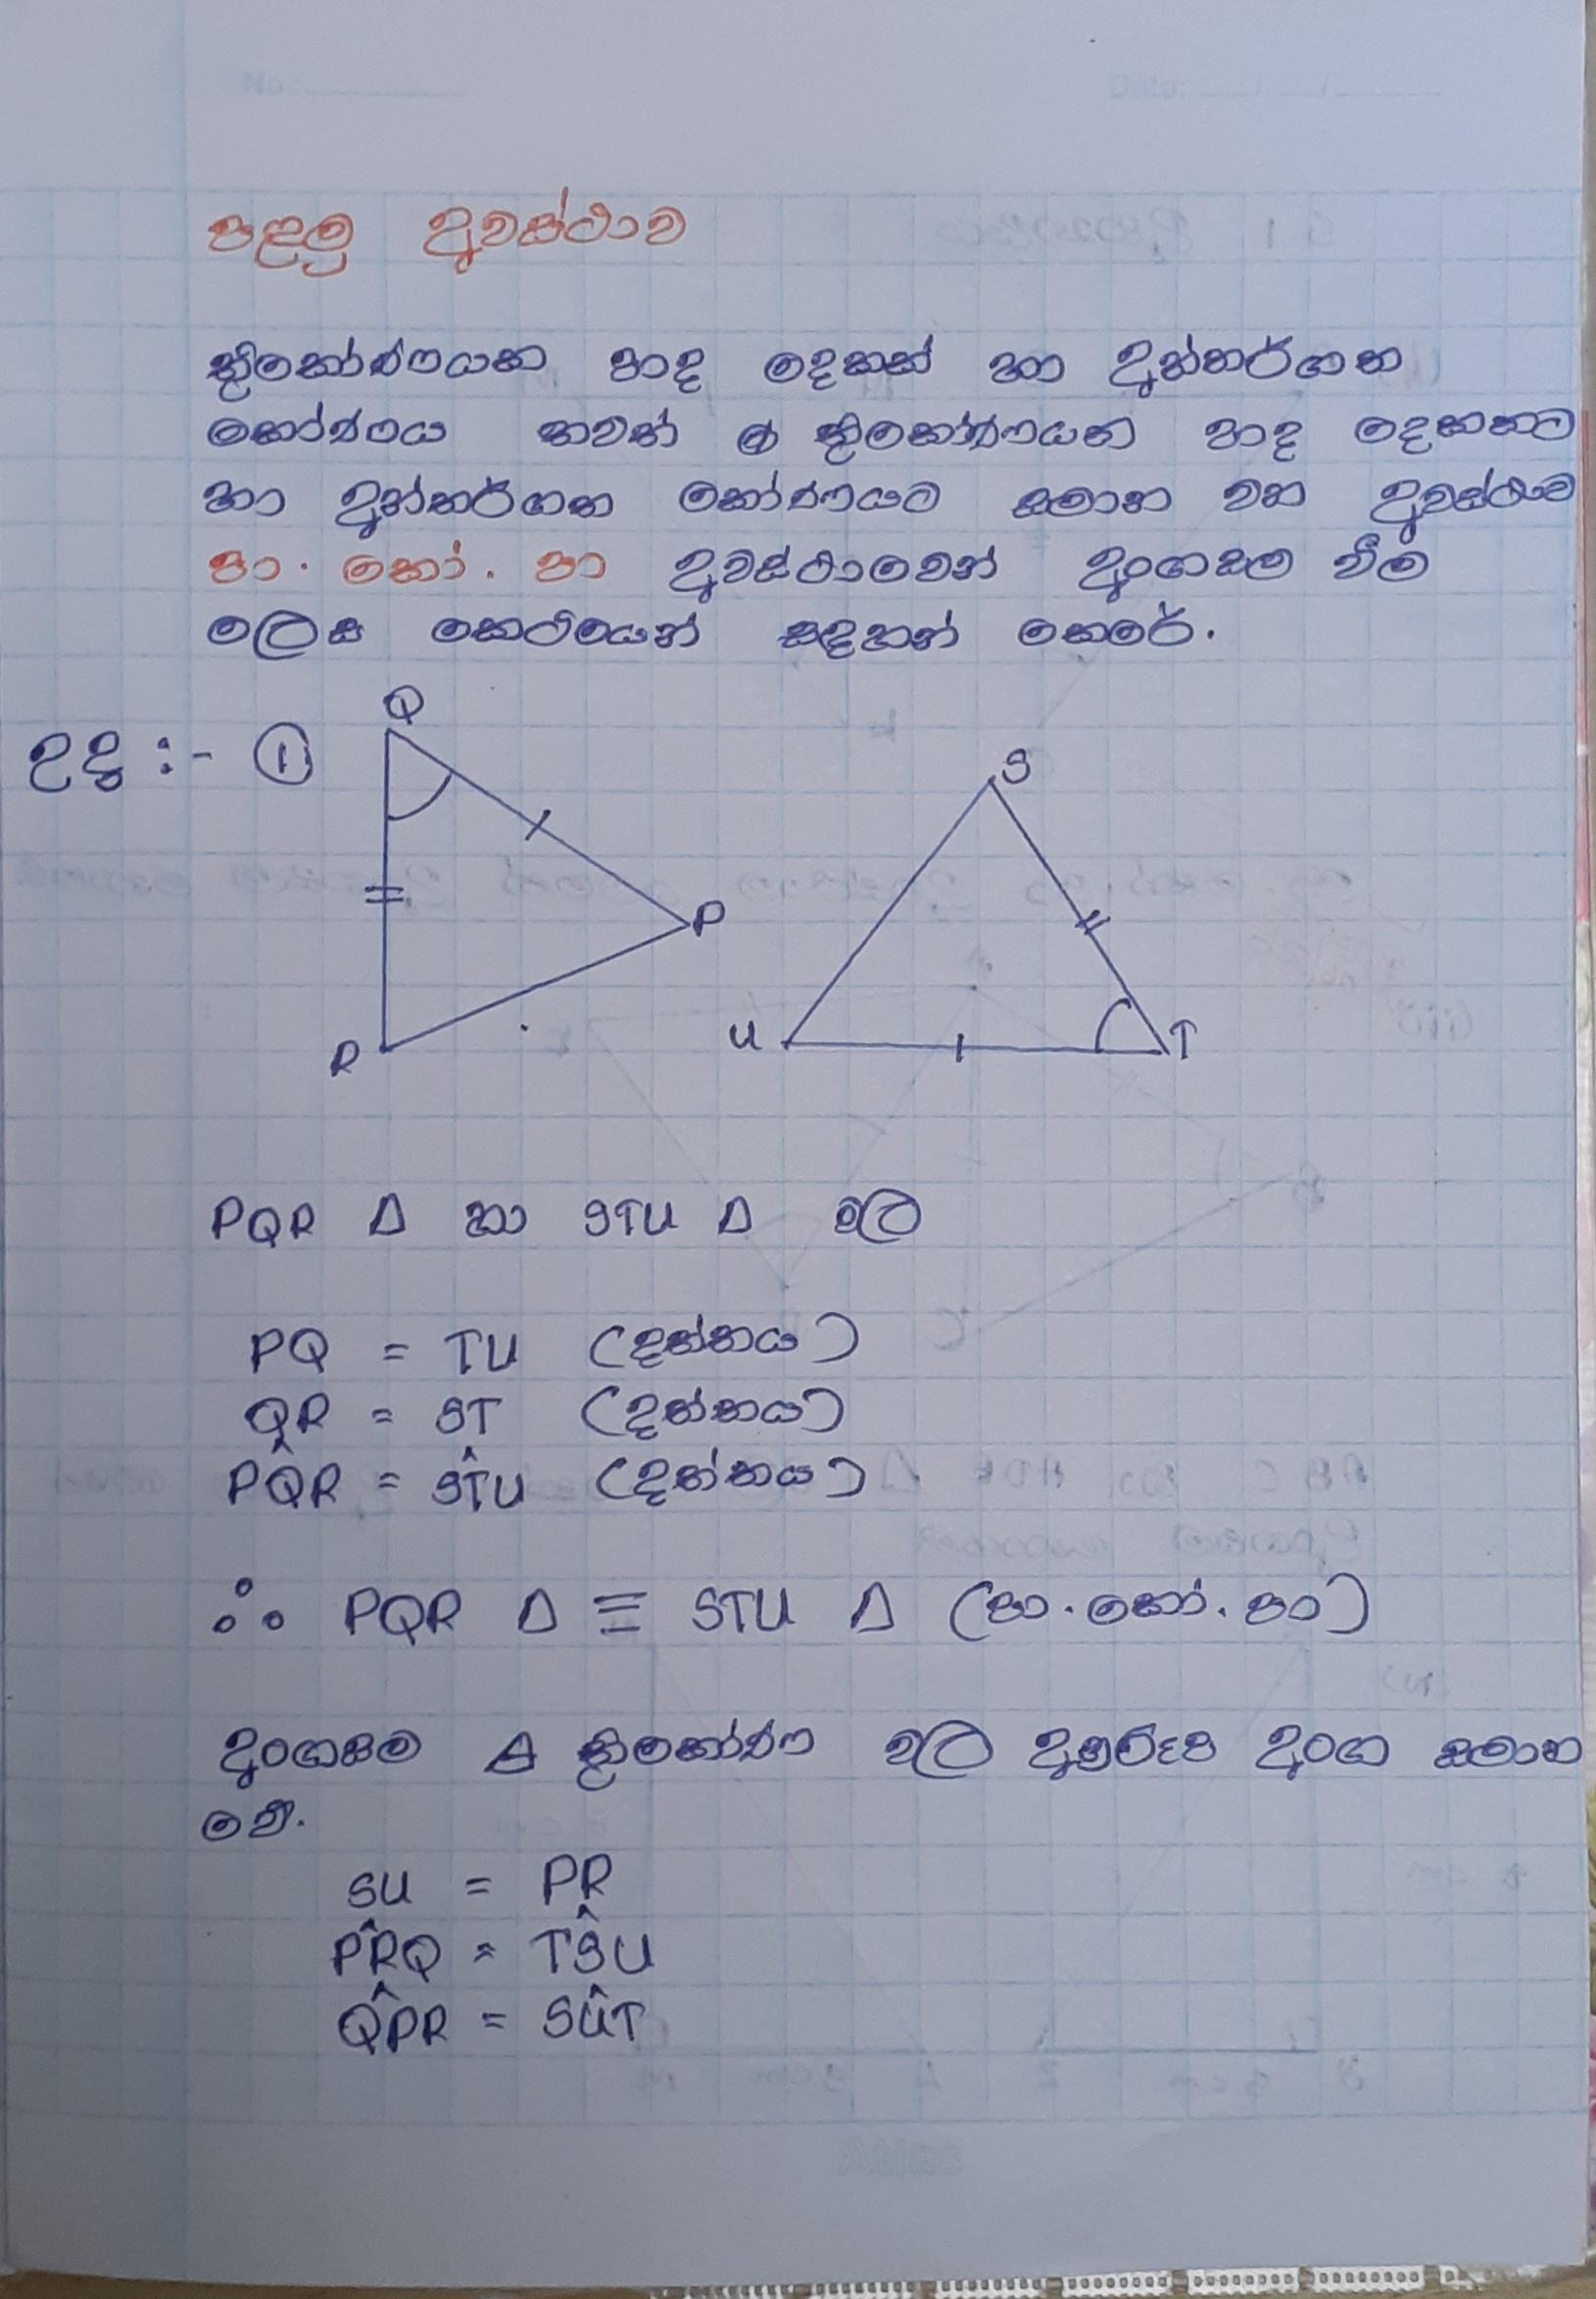 No
Date:
පළමු අවස්ථාව
ත්‍රිකෝණයක පාද දෙකක් හා අන්තර්ගත
කෝණය තවත් ත්‍රිකෝණයක පාද දෙකකට
හා අන්තර්ගත කෝණයට සමාන වන අවස්ථාව
පා. කෝ. පා අවස්ථාවෙන් අංගසම වීම
ලෙස කෙටියෙන් සඳහන් කෙරේ.
උදා :- ①
Q
S
P
R
U
T
PQR Δ හා STU Δ වල
PQ = TU (දත්තය)
QR = ST (දත්තය)
PQ̂R = ST̂U (දත්තය)
∴ PQR Δ ≡ STU Δ (පා.කෝ.පා)
අංගසම ත්‍රිකෝණ වල අනුරූප අංග සමාන
වේ.
SU = PR
PR̂Q = TŜU
QP̂R = SÛT
Atlas